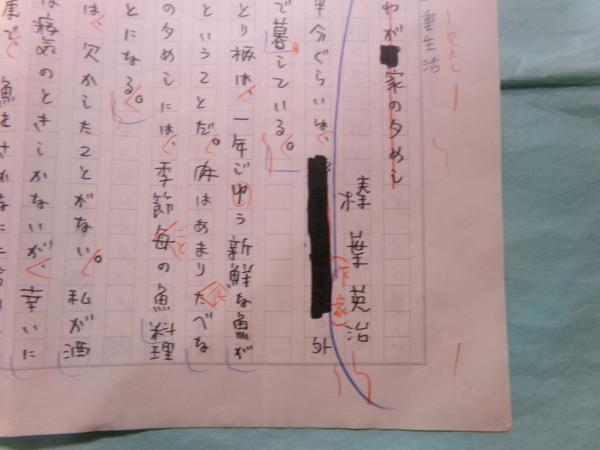 重生活
わが家の夕めし
榛葉英治
(作家)
半分ぐらいは、
外
で暮している。
とり極は、一年ごゆう新鮮な魚が
ということだ。肉はあまりたべな
の夕めしには、季節毎の魚料理
ごと
とになる。
は、欠かしたことがない。私が酒
は病気のときしかないが、幸いに
度で、魚をさかなに